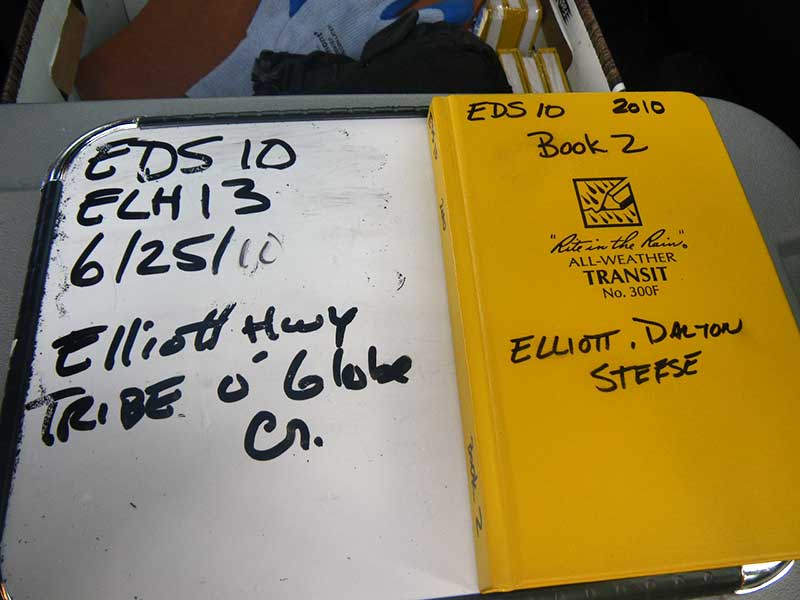 EDS 10
ELH 13
6/25/10
Elliott Hwy
TRIBE O' Globe
Cr.
EDS 10 2010
Book 2
"Rite in the Rain"®
ALL-WEATHER
TRANSIT
No. 300F
ELLIOTT, DALTON
STEESE